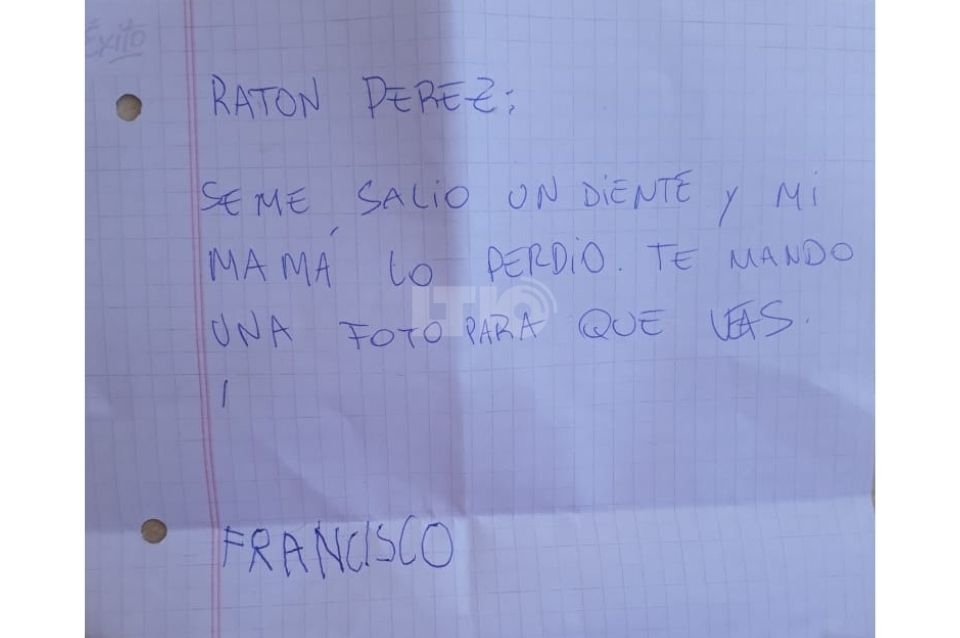 Éxito
RATON PEREZ:
SE ME SALIO UN DIENTE Y MI
MAMÁ LO PERDIO. TE MANDO
UNA FOTO PARA QUE VEAS.
FRANCISCO
LT10